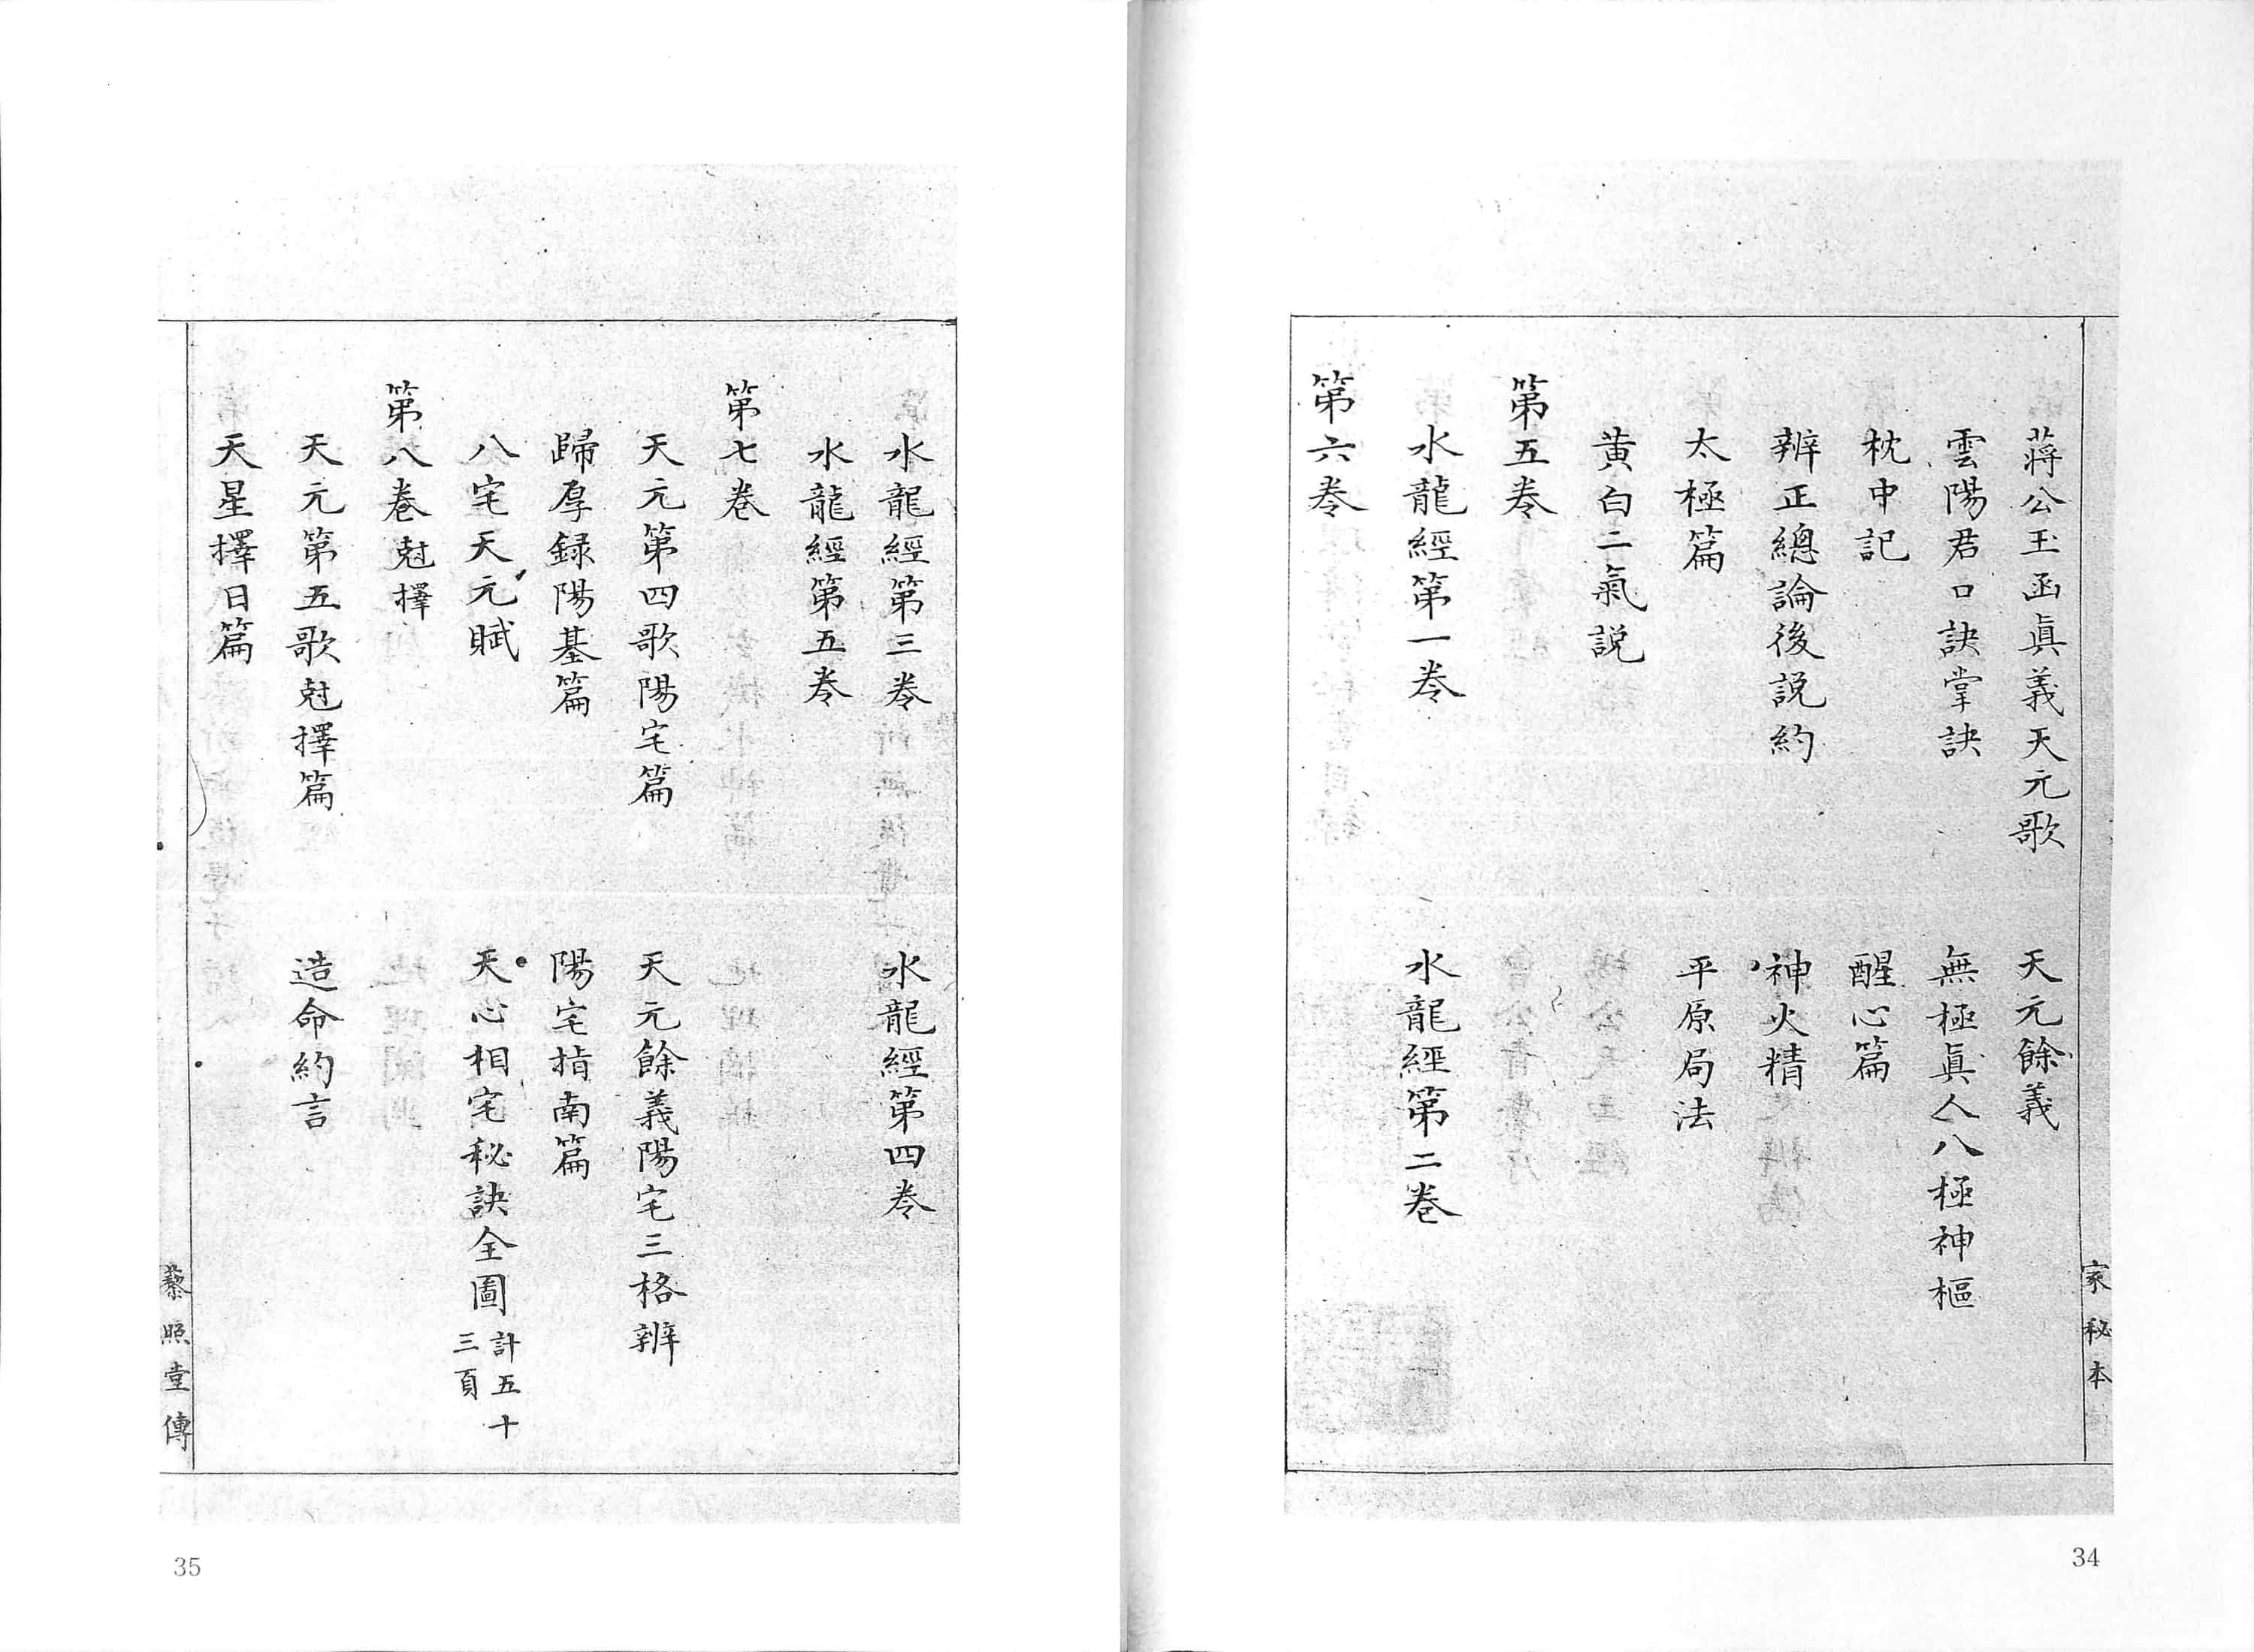 家秘本
蔣公玉函眞義天元歌　天元餘義
雲陽君口訣掌訣　無極眞人八極神樞
枕中記　醒心篇
辨正總論後説約　神火精
太極篇　平原局法
黄白二氣説
第五卷
水龍經第一卷　水龍經第二卷
第六卷
34
水龍經第三卷　水龍經第四卷
水龍經第五卷
第七卷
天元第四歌陽宅篇　天元餘義陽宅三格辨
歸厚録陽基篇　陽宅指南篇
八宅天元賦　天心相宅秘訣全圖計五十三頁
第八卷尅擇
天元第五歌尅擇篇　造命約言
天星擇日篇
藜照堂傳
35